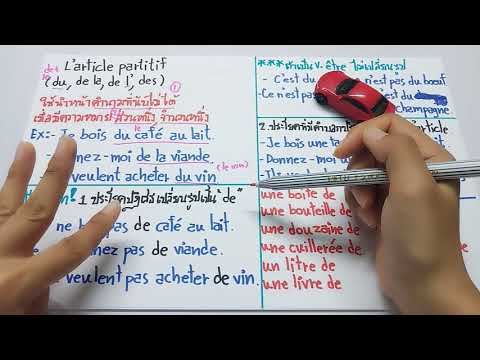 des
L'article partitif
le
(du, de la, de l', des) ①
ใช้นำหน้าคำนามที่นับไม่ได้
เพื่อมีความหมายว่า ส่วนหนึ่ง, จำนวนหนึ่ง
le
Ex:- Je bois du café au lait.
nez-moi de la viande.
veulent acheter du vin (le vin)
1. ประโยคปฏิเสธ เปลี่ยนรูปเป็น "de"
pas de café au lait.
nez pas de viande.
veulent pas acheter de vin.
*** ถ้าเป็น V. être ไม่เปลี่ยนรูป
- C'est du
n'est pas du bœuf
-Ce n'est pas
c'est du
champagne
2. ประโยคที่มี
article
- Je bois une
- Donnez-moi
une boîte de
une bouteille de
une douzaine de
une cuillerée de
un litre de
une livre de